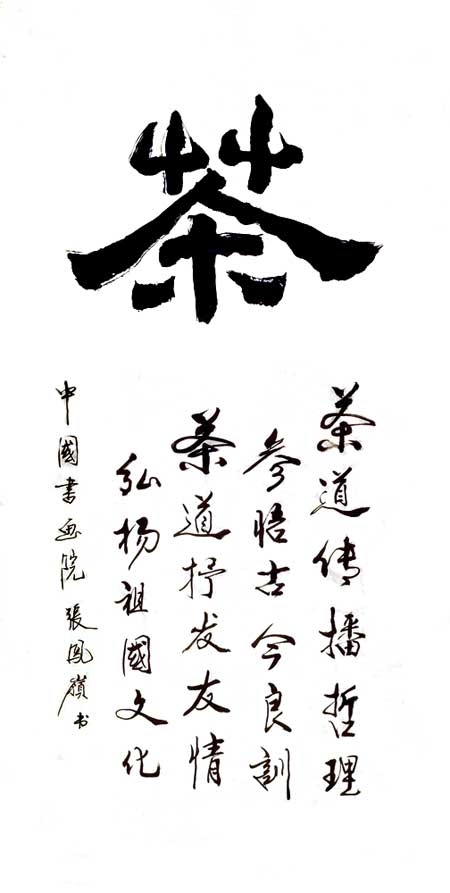 茶
茶道传播哲理
参悟古今良訓
茶道抒发友情
弘杨祖國文化
中國书画院 張鳳嶺书